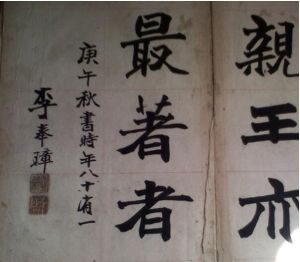 親王亦
最著者
庚午秋書時年八十有一
李奉璋